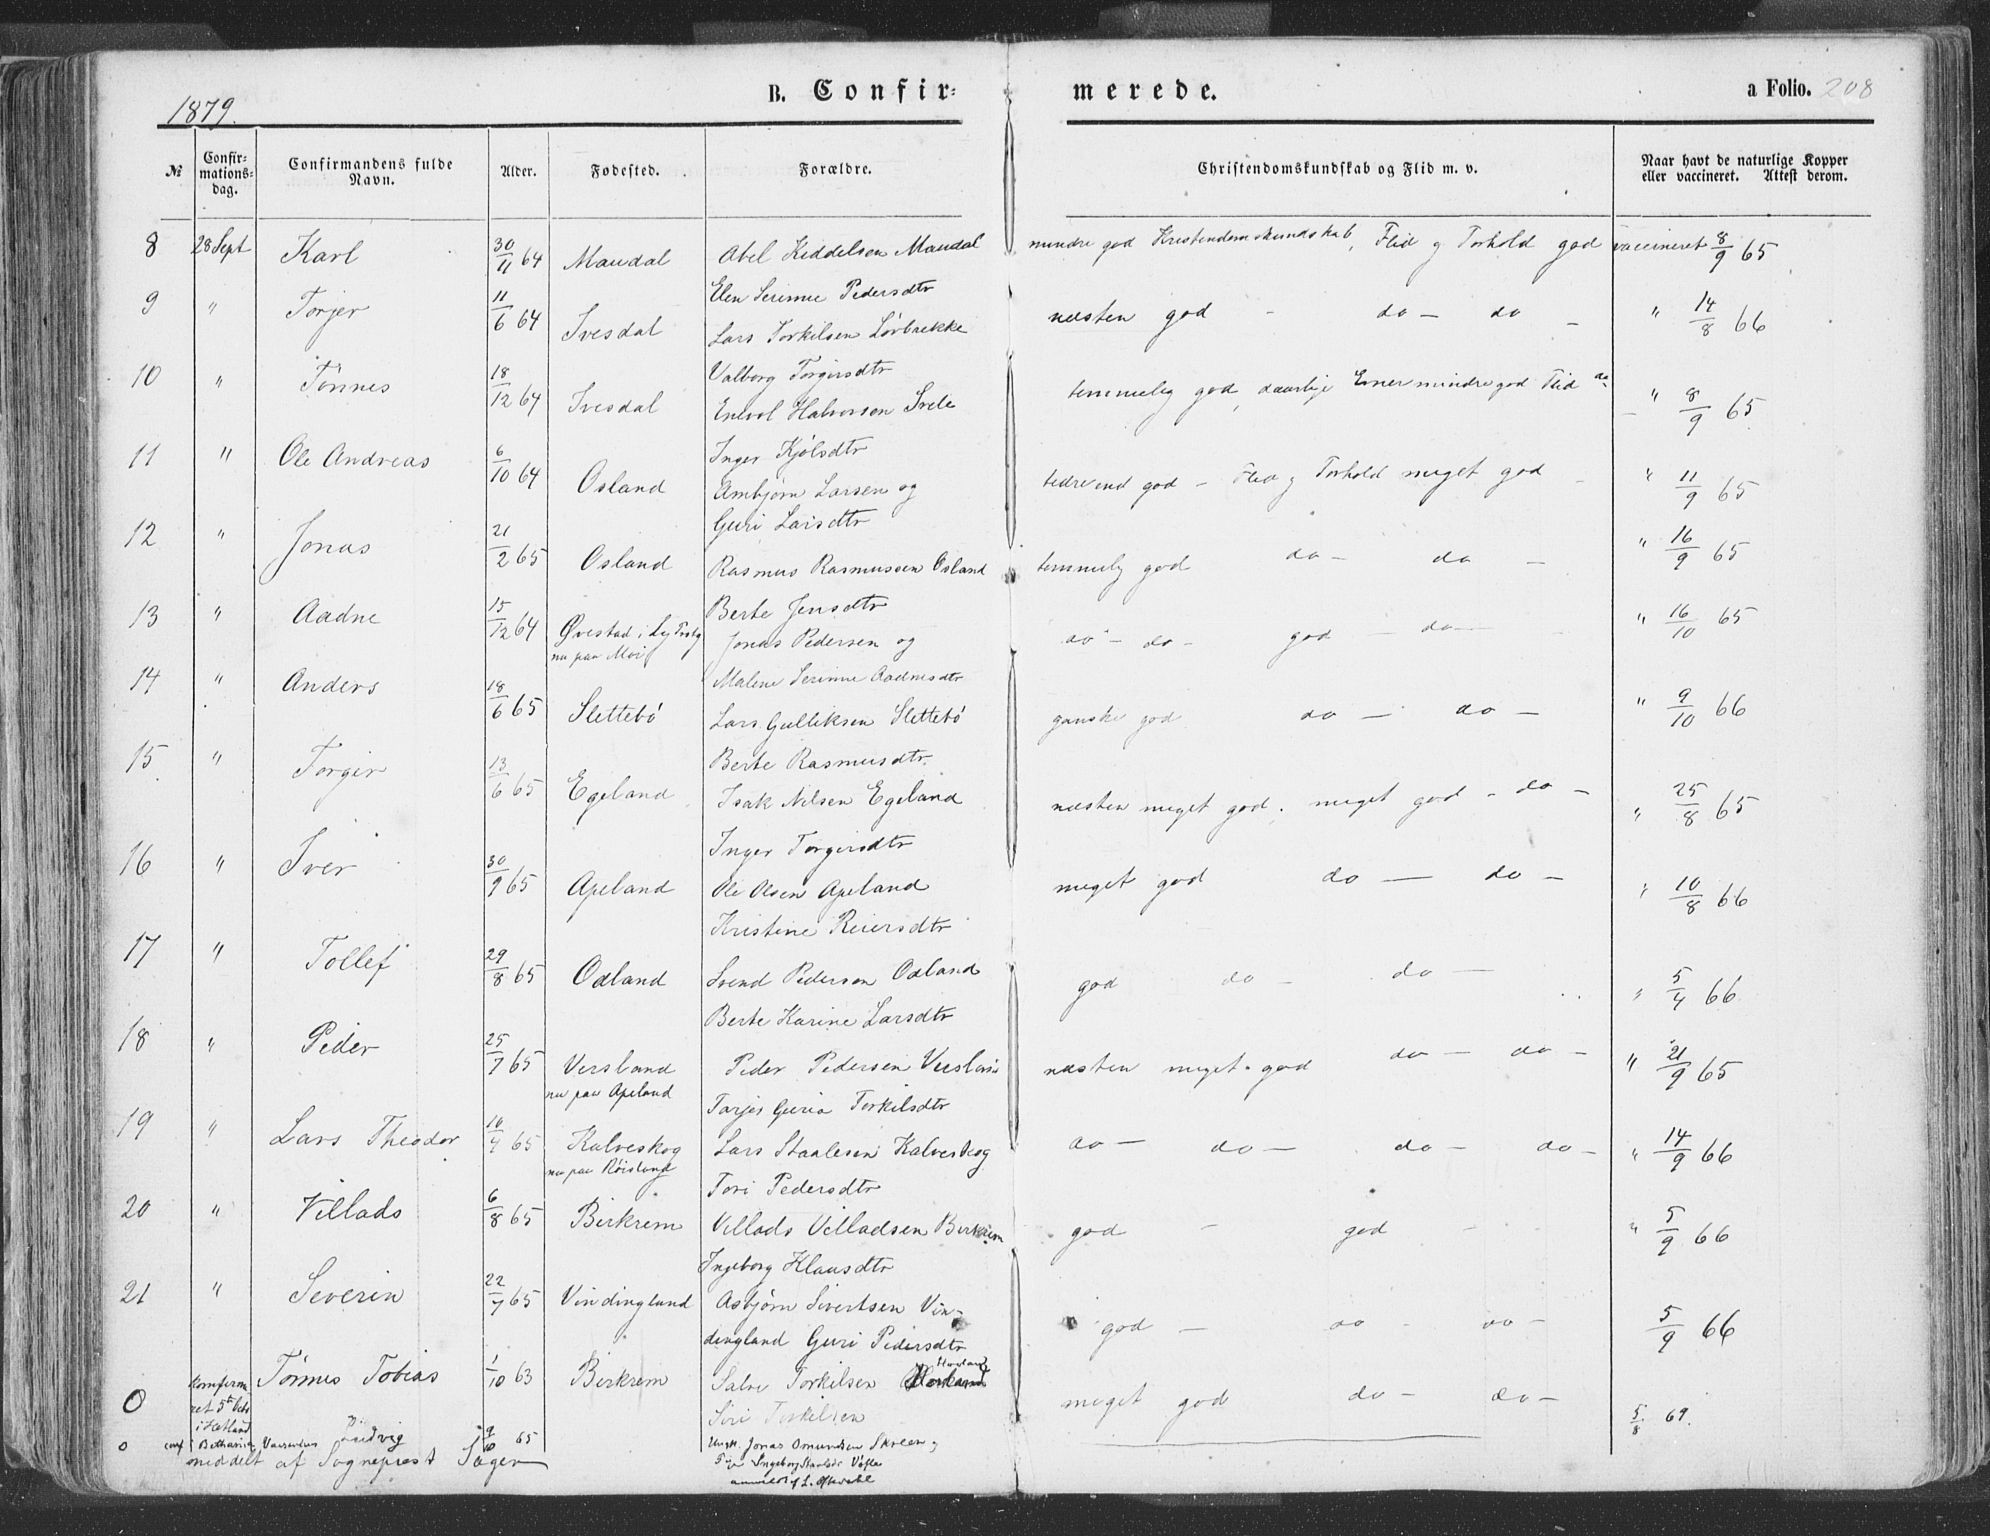 1879.
B. Confirmerede.
a Folio. 208
№ Confirmationsdag. Confirmandens fulde Navn. Alder. Fødested. Forældre. Christendomskundskab og Flid m. v. Naar havt de naturlige Kopper eller vaccineret. Attest derom.
8 28 Sept Karl 30/11 64 Maudal Abel Keddelsen Maudal mindre god Kristendomskundskab, Flid og Forhold god vaccineret 8/9 65
Elen Serinne Pedersdtr
9 " Torjer 11/6 64 Ivesdal Lars Torkilsen Lørbrekke næsten god - do - do - " 14/8 66
Valborg Torgersdtr
10 " Tønnes 18/12 64 Ivesdal Enevol Halvorsen Svele temmelig god, daarlige Evner mindre god Flid do - " 8/9 65
Inger Kjølsdtr
11 " Ole Andreas 6/10 64 Osland Ambjørn Larsen og bedre end god - Flid og Forhold meget god - " 11/9 65
Guri Larsdtr
12 " Jonas 21/2 65 Osland Rasmus Rasmussen Osland temmelig god do - do - " 16/9 65
Berte Jensdtr
13 " Aadne 15/12 64 Øvestad i Lyngdal nu paa Moi Jonas Pedersen og do - do - god do - " 16/10 65
Malene Serinne Aadnesdtr
14 " Anders 18/6 65 Slettebø Lars Gulliksen Slettebø ganske god do - do - " 9/10 66
Berte Rasmusdtr.
15 " Torger 13/6 65 Egeland Isak Nilsen Egeland næsten meget god. meget god - do - " 25/8 65
Inger Torgersdtr
16 " Iver 30/9 65 Apeland Ole Olsen Apeland meget god do - do - " 10/8 66
Kristine Reiersdtr
17 " Tollef 29/8 65 Odland Svend Pedersen Odland god do - do - " 5/4 66
Berte Karine Larsdtr
18 " Peder 25/7 65 Versland nu paa Apeland Peder Pedersen Versland næsten meget god do - do - " 21/9 65
Tarjer Guria Torkilsdtr
19 " Lars Theodor 10/4 65 Kalveskog nu paa Røisland Lars Staalesen Kalveskog do - do - do - do - " 14/9 66
Tori Pedersdtr
20 " Villads 6/8 65 Birkrem Villads Villadsen Birkrem god - god - " 5/9 66
Ingeborg Klausdtr
21 " Severin 22/7 65 Vindingland Asbjørn Sivertsen Vin- god - do - do - 5/9 66
dingland Guri Pedersdtr
0 Konfirmeret 5te Octb i Hetland Tønnes Tobias 1/10 63 Birkrem Salve Torkilsen Hovland meget god do - do - 5/8 69.
Siri Torkilsen
0 conf i Bethania Ludvig 9/10 65 Ungk. Jonas Omundsen Skreen og
meddelt af Sogneprest Pige Ingeborg
anmeldt af L.